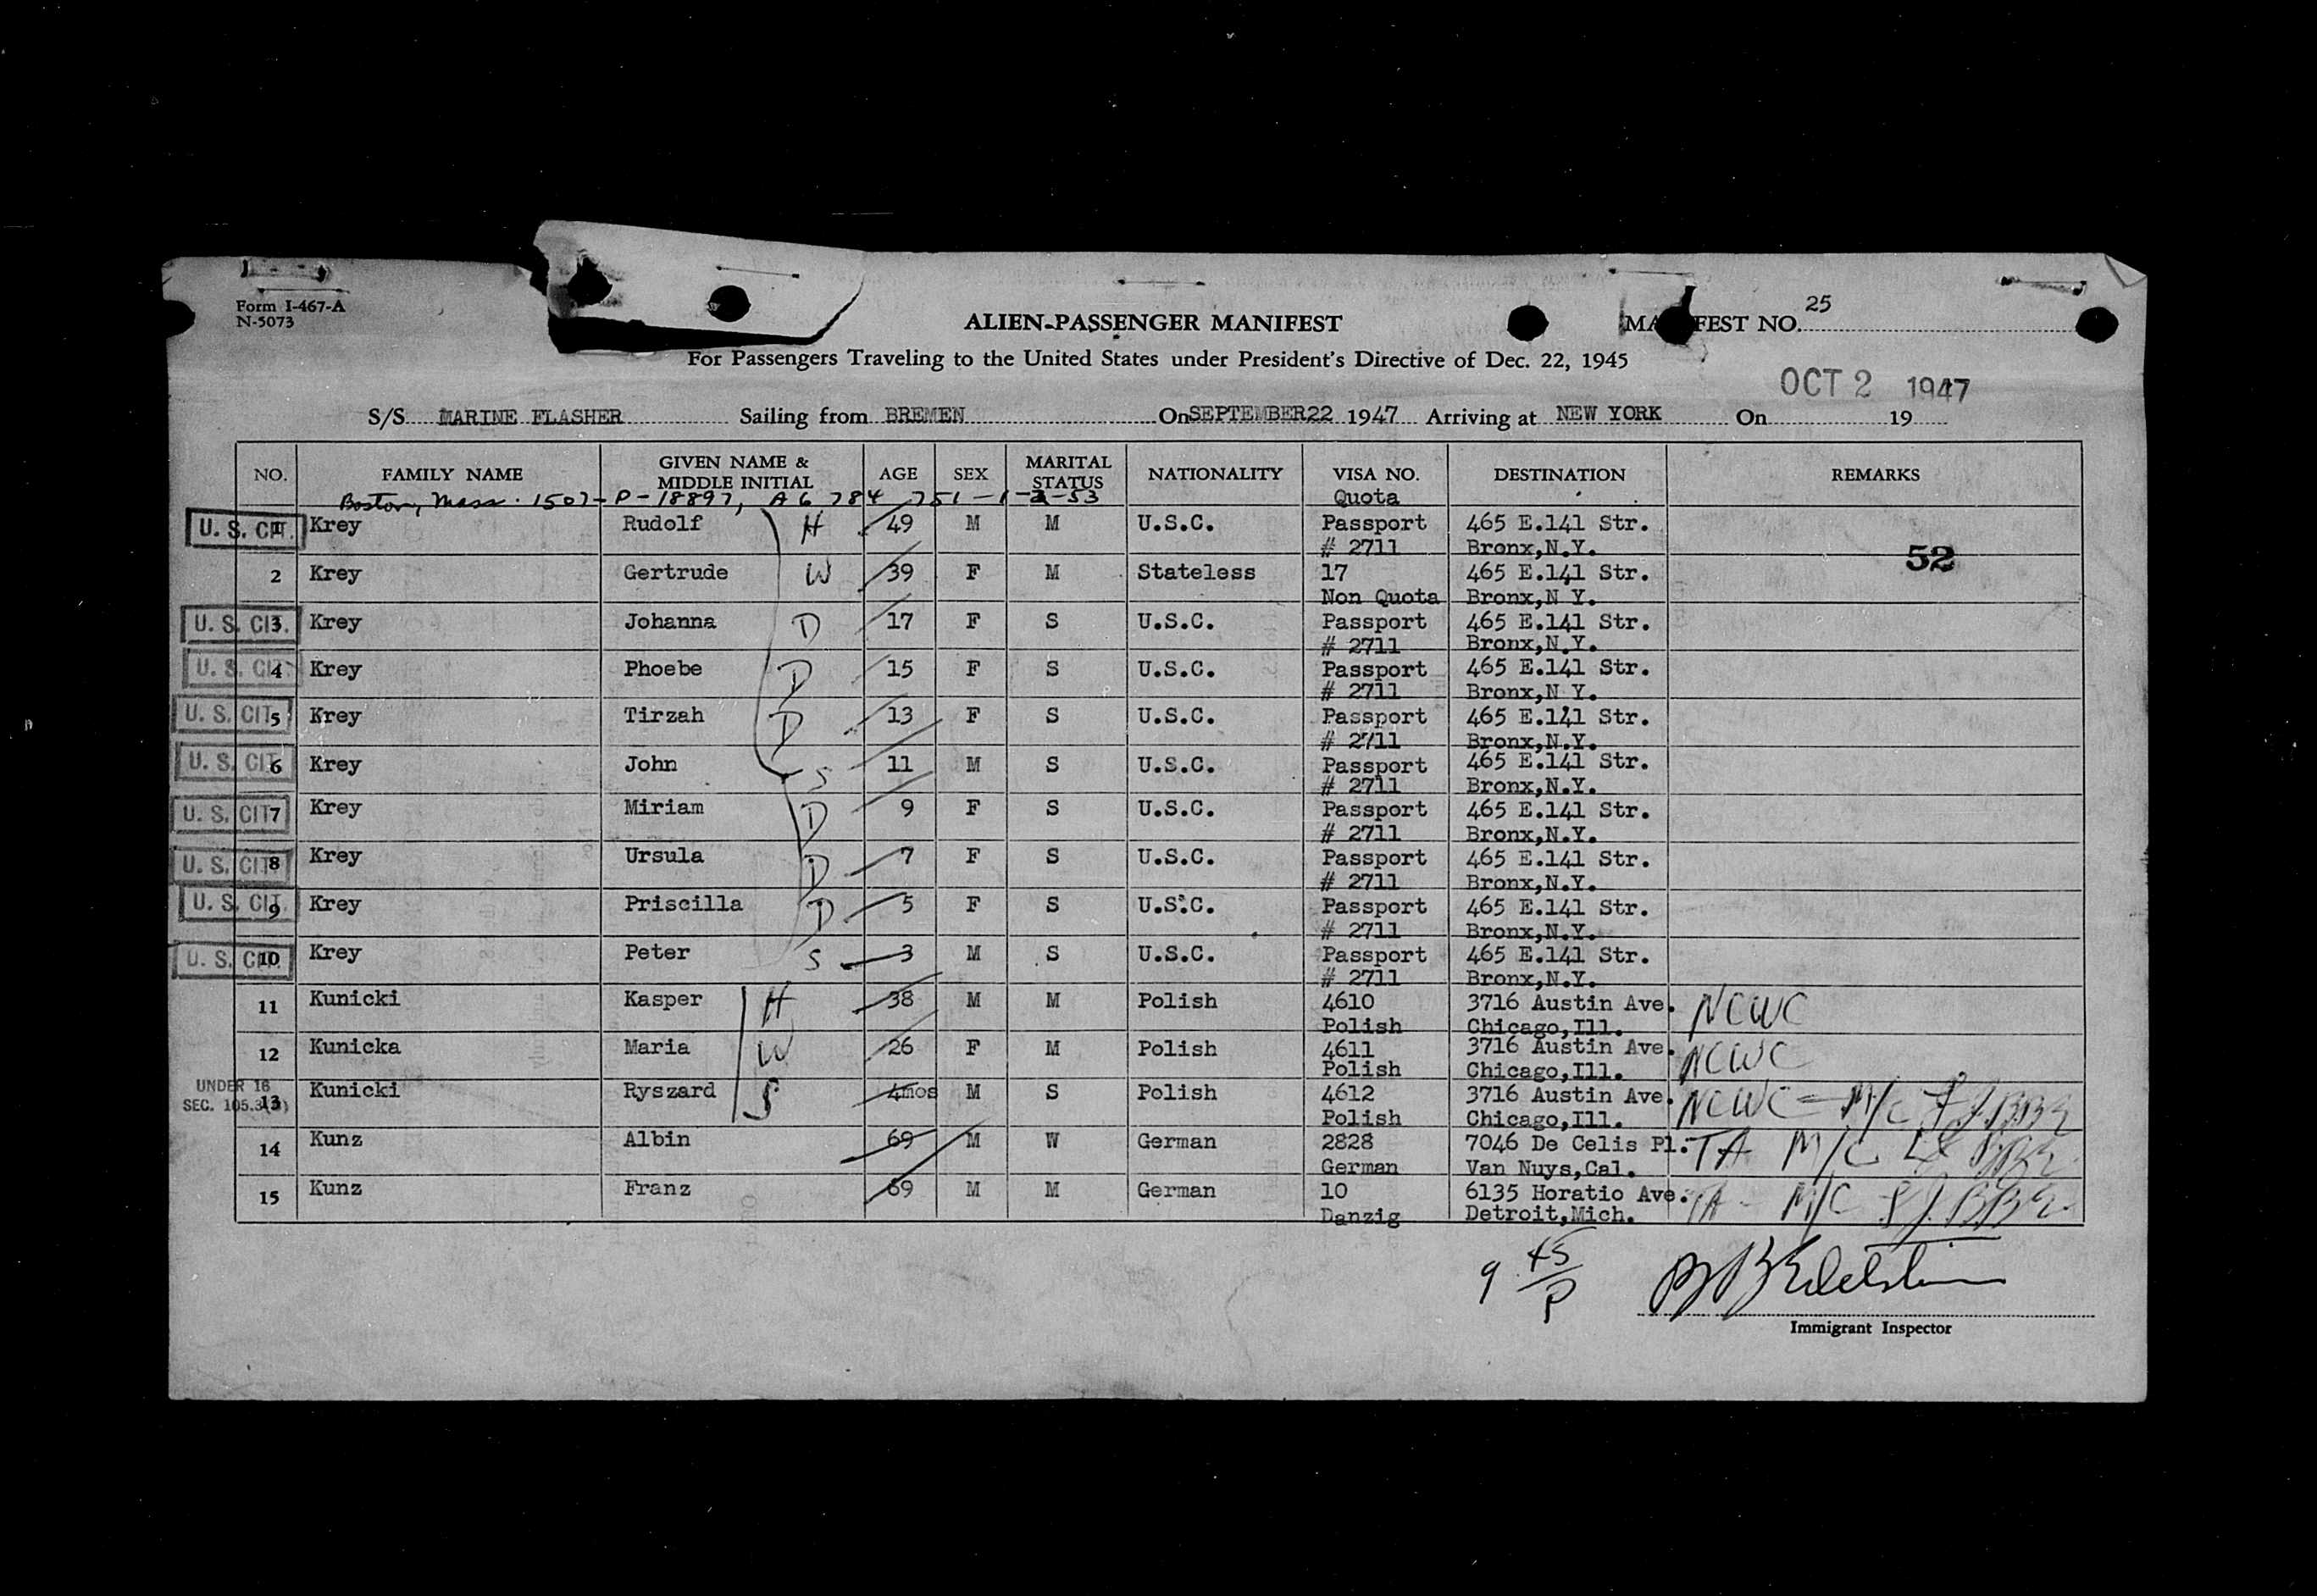 Form I-467-A
N-5073
25
ALIEN-PASSENGER MANIFEST
MA FEST NO.
For Passengers Traveling to the United States under President's Directive of Dec. 22, 1945
OCT 2 1947
S/S MARINE FLASHER Sailing from BREMEN On SEPTEMBER22 1947 Arriving at NEW YORK On 19
NO. FAMILY NAME GIVEN NAME & MIDDLE INITIAL AGE SEX MARITAL STATUS NATIONALITY VISA NO. DESTINATION REMARKS
Boston, Mass. 1507-P-18897, A6 784 751-1-2-53 Quota
U. S. CIT. 1 Krey Rudolf H 49 M M U.S.C. Passport 465 E.141 Str.
# 2711 Bronx,N.Y.
52
2 Krey Gertrude W 39 F M Stateless 17 465 E.141 Str.
Non Quota Bronx,N Y.
U. S. CIT. 3 Krey Johanna D 17 F S U.S.C. Passport 465 E.141 Str.
# 2711 Bronx,N.Y.
U. S. CIT. 4 Krey Phoebe D 15 F S U.S.C. Passport 465 E.141 Str.
# 2711 Bronx,N Y.
U. S. CIT. 5 Krey Tirzah D 13 F S U.S.C. Passport 465 E.141 Str.
# 2711 Bronx,N.Y.
U. S. CIT. 6 Krey John S 11 M S U.S.C. Passport 465 E.141 Str.
# 2711 Bronx,N.Y.
U. S. CIT. 7 Krey Miriam D 9 F S U.S.C. Passport 465 E.141 Str.
# 2711 Bronx,N.Y.
U. S. CIT. 8 Krey Ursula D 7 F S U.S.C. Passport 465 E.141 Str.
# 2711 Bronx,N.Y.
U. S. CIT. 9 Krey Priscilla D 5 F S U.S.C. Passport 465 E.141 Str.
# 2711 Bronx,N.Y.
U. S. CIT. 10 Krey Peter S 3 M S U.S.C. Passport 465 E.141 Str.
# 2711 Bronx,N.Y.
11 Kunicki Kasper H 38 M M Polish 4610 3716 Austin Ave. NCWC
Polish Chicago,Ill.
12 Kunicka Maria W 26 F M Polish 4611 3716 Austin Ave. NCWC
Polish Chicago,Ill.
UNDER 16
SEC. 105.3( ) 13 Kunicki Ryszard S 4mos M S Polish 4612 3716 Austin Ave. NCWC - M/C
Polish Chicago,Ill.
14 Kunz Albin 69 M W German 2828 7046 De Celis Pl. TA M/C
German Van Nuys,Cal.
15 Kunz Franz 69 M M German 10 6135 Horatio Ave. TA - M/C
Danzig Detroit,Mich.
9 45/P
Immigrant Inspector